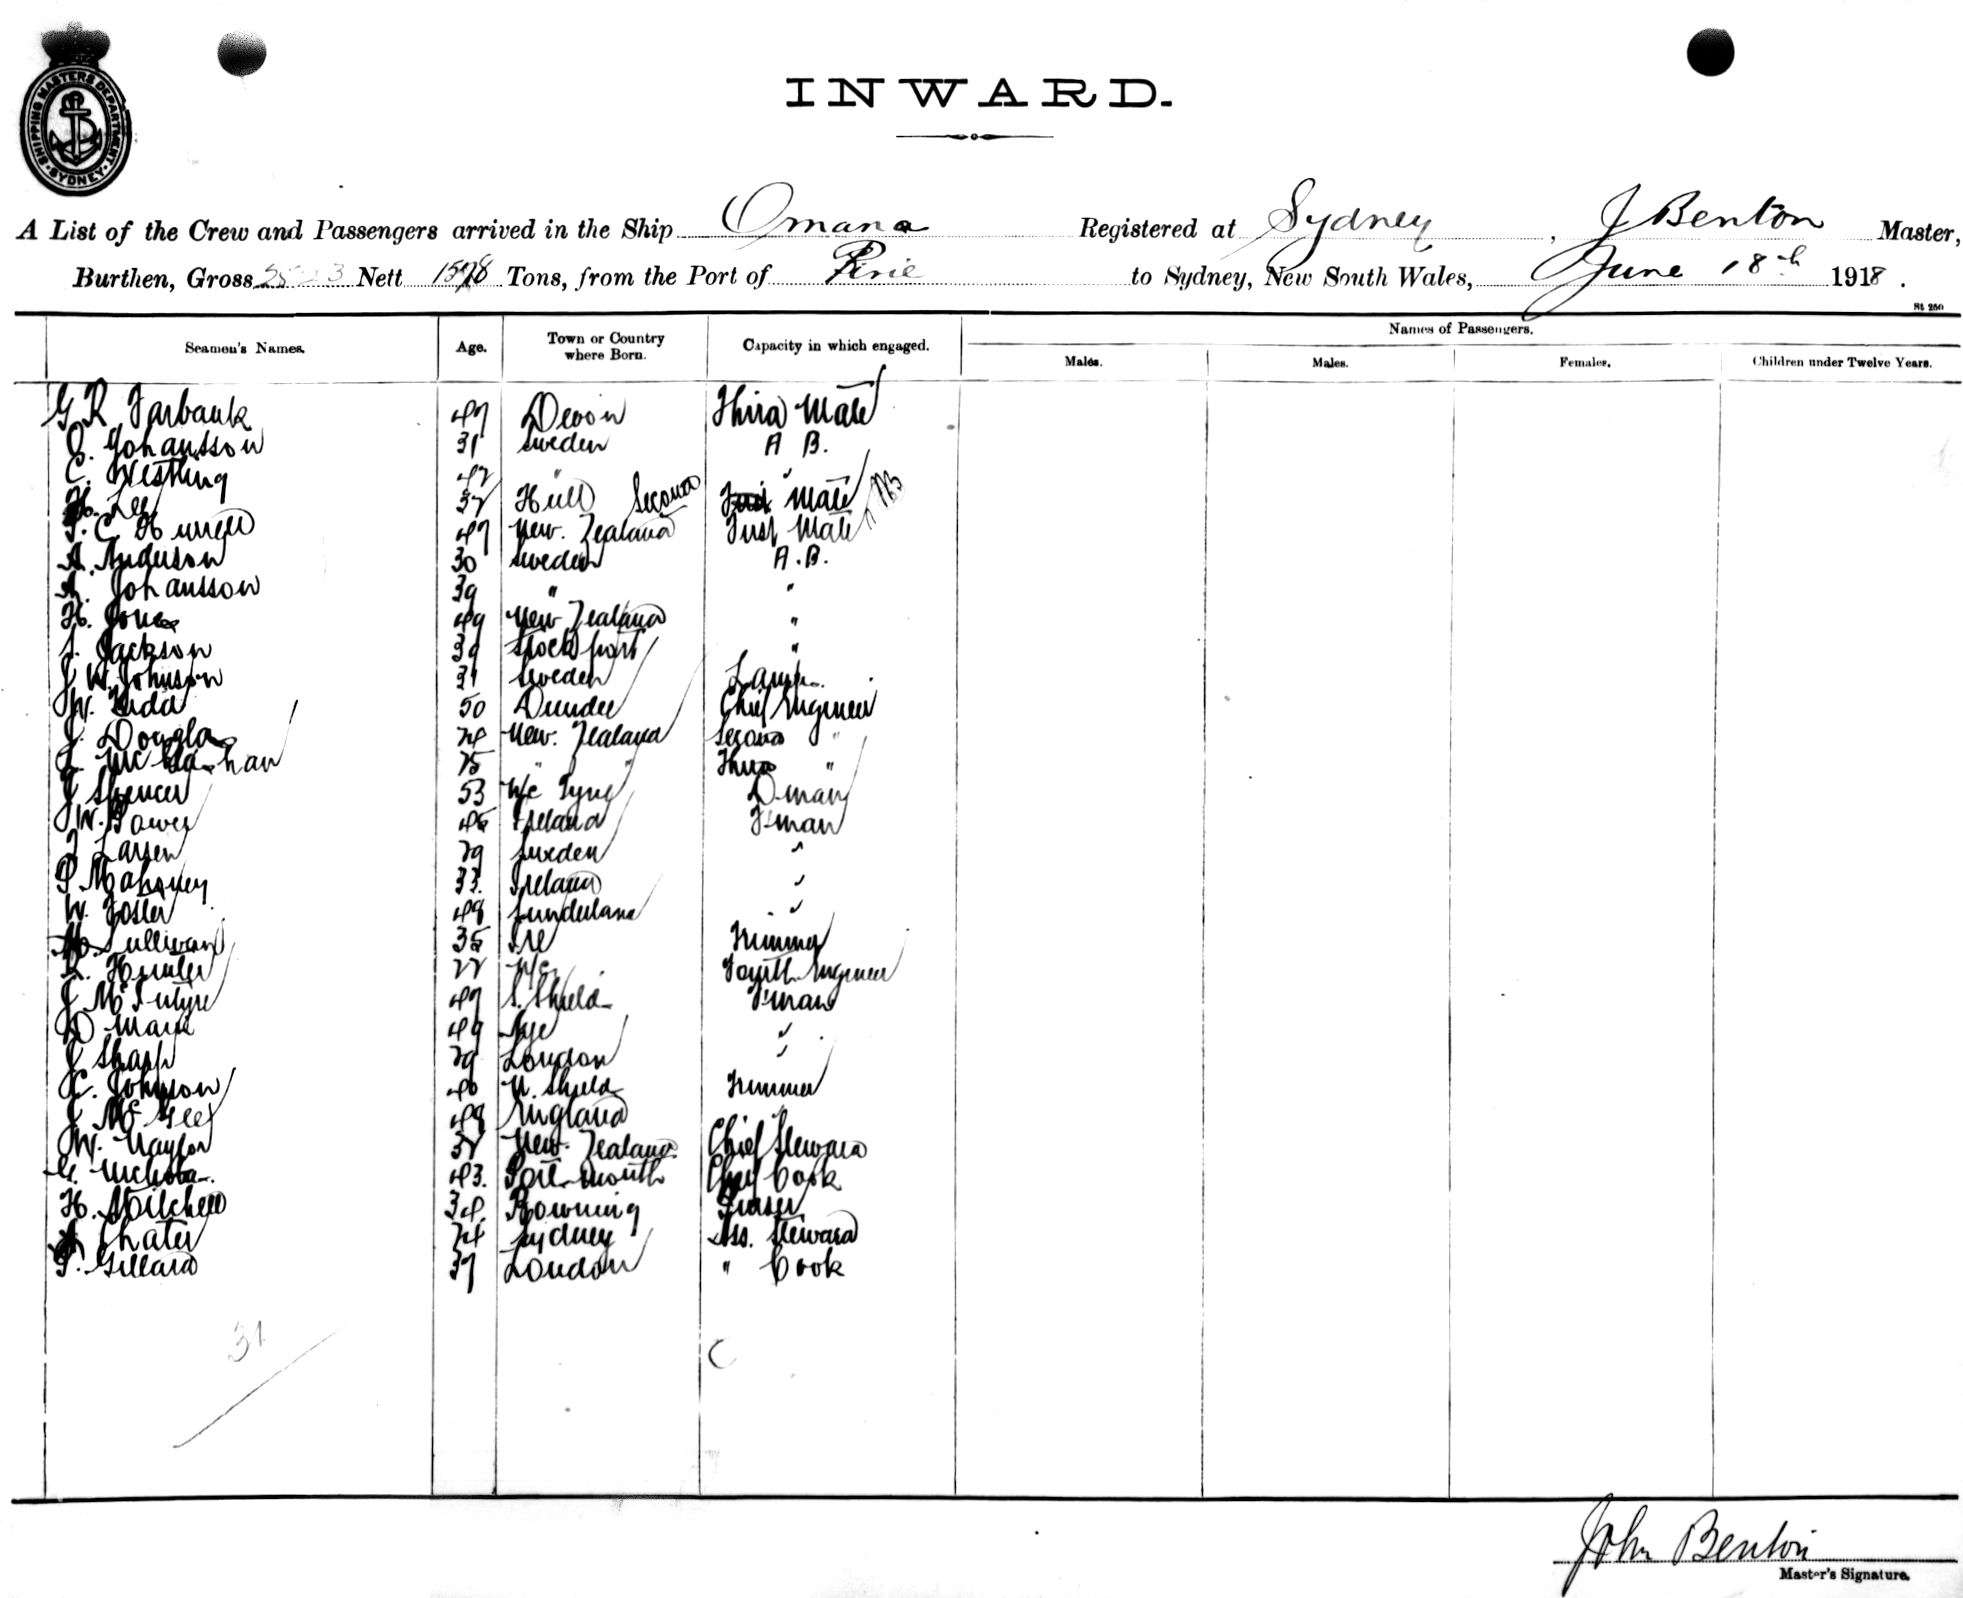 SHIPPING MASTERS DEPARTMENT
SYDNEY
INWARD.
A List of the Crew and Passengers arrived in the Ship Omana Registered at Sydney, J Benton Master,
Burthen, Gross 2523 Nett 1578 Tons, from the Port of Pirie to Sydney, New South Wales, June 18th 1918.
St 250
Seamen's Names. Age. Town or Country where Born. Capacity in which engaged. Names of Passengers.
Males. Males. Females. Children under Twelve Years.
G R Farbank 47 Devon Third Mate
Johansson 31 Sweden A B.
C. Westling 42 " "
H. Lee 32 Hull Second Mate
New. Zealand First Mate
A. Anderson 30 Sweden A.B.
A. Johansson 39 " "
H. Jones 49 New Zealand "
Jackson 39 Stockport "
J W. Johnson 31 Sweden Lamps.
W. Kidd 50 Dundee Chief Engineer
J. Douglas 24 New. Zealand Second "
25 " " Third "
J Spencer 53 N/c Tyne D'man
W. Power Ireland F'man
Larsen 29 Sweden "
P Mahoney 33. Ireland "
W. Foster 48 Sunderland "
Sullivan 35 Ire Trimmer
R. Hunter 22 N/c Fourth Engineer
J McIntyre 47 S. Shields F'man
D 49 "
J Sharp 29 London "
C. Johnson 40 N. Shields Trimmer
J McGee 48 England
W. Naylor 32 New. Zealand Chief Steward
G. Nicholas 43. Portsmouth Chief Cook
H. Mitchell 34. Greaser
Chater 24 Sydney Ass. Steward
Gillard 37 London " Cook
31
John Benton
Master's Signature.